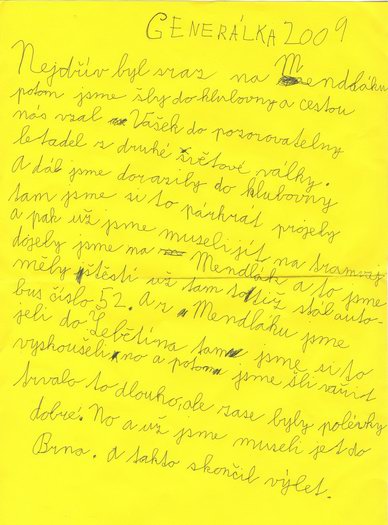 GENERÁLKA 2009
Nejdřív byl sraz na Mendláku
potom jsme šly do klubovny a cestou
nás vzal Vašek do pozorovatelny
letadel z druhé světové války.
A dál jsme dorazily do klubovny
tam jsme si to párkrat projely
a pak už jsme museli jít na tramvaj
dojely jsme na Mendlák a to jsme
měly štěstí už tam totiž stál auto-
bus číslo 52. A z Mendláku jsme
jeli do tam jsme si to
vyskoušeli no a potom jsme šli vařit
trvalo to dlouho, ale zase byly polévky
dobré. No a už jsme museli jet do
Brna. A takto skončil výlet.